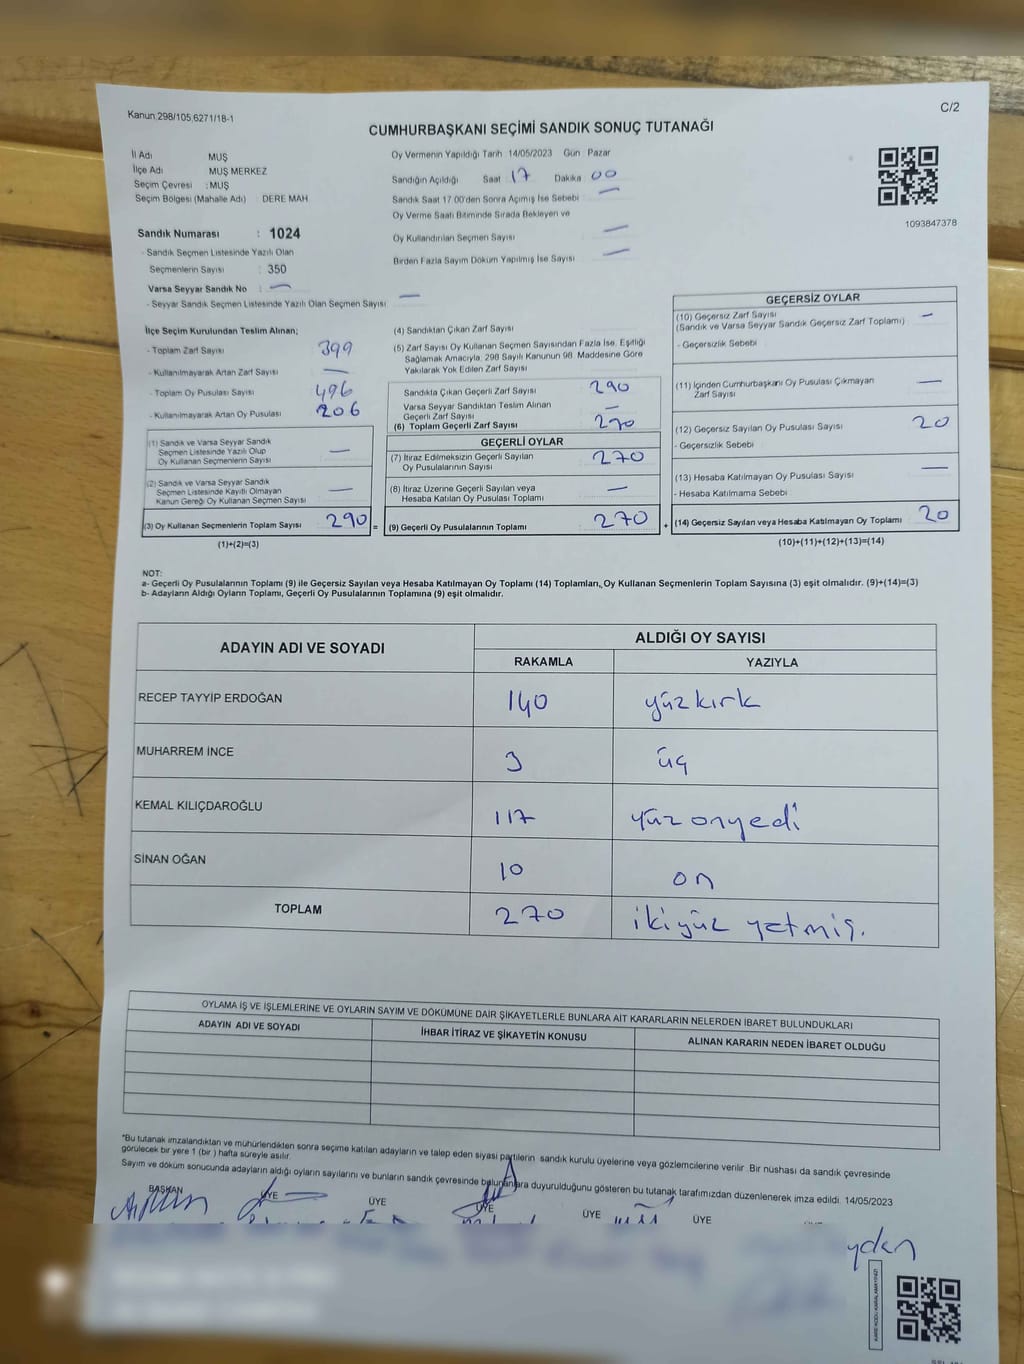 Kanun:298/105,6271/18-1
C/2
CUMHURBAŞKANI SEÇİMİ SANDIK SONUÇ TUTANAĞI
İl Adı MUŞ
İlçe Adı MUŞ MERKEZ
Seçim Çevresi : MUŞ
Seçim Bölgesi (Mahalle Adı) DERE MAH
Sandık Numarası : 1024
- Sandık Seçmen Listesinde Yazılı Olan
Seçmenlerin Sayısı : 350
Varsa Seyyar Sandık No : —
- Seyyar Sandık Seçmen Listesinde Yazılı Olan Seçmen Sayısı : —
Oy Vermenin Yapıldığı Tarih 14/05/2023 Gün Pazar
Sandığın Açıldığı Saat : 17 Dakika 00
Sandık Saat 17.00'den Sonra Açımış İse Sebebi : —
Oy Verme Saati Bitiminde Sırada Bekleyen ve
Oy Kullandırılan Seçmen Sayısı : —
Birden Fazla Sayım Döküm Yapılmış İse Sayısı : —
1093847378
İlçe Seçim Kurulundan Teslim Alınan;
- Toplam Zarf Sayısı 399
- Kullanılmayarak Artan Zarf Sayısı —
- Toplam Oy Pusulası Sayısı 496
- Kullanılmayarak Artan Oy Pusulası 206
(1) Sandık ve Varsa Seyyar Sandık
Seçmen Listesinde Yazılı Olup
Oy Kullanan Seçmenlerin Sayısı —
(2) Sandık ve Varsa Seyyar Sandık
Seçmen Listesinde Kayıtlı Olmayan
Kanun Gereği Oy Kullanan Seçmen Sayısı —
(3) Oy Kullanan Seçmenlerin Toplam Sayısı 290 =
(1)+(2)=(3)
(4) Sandıktan Çıkan Zarf Sayısı
(5) Zarf Sayısı Oy Kullanan Seçmen Sayısından Fazla İse, Eşitliği
Sağlamak Amacıyla, 298 Sayılı Kanunun 98. Maddesine Göre
Yakılarak Yok Edilen Zarf Sayısı
Sandıkta Çıkan Geçerli Zarf Sayısı 290
Varsa Seyyar Sandıktan Teslim Alınan
Geçerli Zarf Sayısı —
(6) Toplam Geçerli Zarf Sayısı 270
GEÇERLİ OYLAR
(7) İtiraz Edilmeksizin Geçerli Sayılan
Oy Pusulalarının Sayısı 270
(8) İtiraz Üzerine Geçerli Sayılan veya
Hesaba Katılan Oy Pusulası Toplamı —
(9) Geçerli Oy Pusulalarının Toplamı 270 +
GEÇERSİZ OYLAR
(10) Geçersiz Zarf Sayısı —
(Sandık ve Varsa Seyyar Sandık Geçersiz Zarf Toplamı)
- Geçersizlik Sebebi
(11) İçinden Cumhurbaşkanı Oy Pusulası Çıkmayan
Zarf Sayısı —
(12) Geçersiz Sayılan Oy Pusulası Sayısı 20
- Geçersizlik Sebebi
(13) Hesaba Katılmayan Oy Pusulası Sayısı —
- Hesaba Katılmama Sebebi
(14) Geçersiz Sayılan veya Hesaba Katılmayan Oy Toplamı 20
(10)+(11)+(12)+(13)=(14)
NOT:
a- Geçerli Oy Pusulalarının Toplamı (9) ile Geçersiz Sayılan veya Hesaba Katılmayan Oy Toplamı (14) Toplamları, Oy Kullanan Seçmenlerin Toplam Sayısına (3) eşit olmalıdır. (9)+(14)=(3)
b- Adayların Aldığı Oyların Toplamı, Geçerli Oy Pusulalarının Toplamına (9) eşit olmalıdır.
ADAYIN ADI VE SOYADI ALDIĞI OY SAYISI
RAKAMLA YAZIYLA
RECEP TAYYİP ERDOĞAN 140 yüzkırk
MUHARREM İNCE 3 üç
KEMAL KILIÇDAROĞLU 117 yüzonyedi
SİNAN OĞAN 10 on
TOPLAM 270 ikiyüz yetmiş.
OYLAMA İŞ VE İŞLEMLERİNE VE OYLARIN SAYIM VE DÖKÜMÜNE DAİR ŞİKAYETLERLE BUNLARA AİT KARARLARIN NELERDEN İBARET BULUNDUKLARI
ADAYIN ADI VE SOYADI İHBAR İTİRAZ VE ŞİKAYETİN KONUSU ALINAN KARARIN NEDEN İBARET OLDUĞU
"Bu tutanak imzalandıktan ve mühürlendikten sonra seçime katılan adayların ve talep eden siyasi partilerin sandık kurulu üyelerine veya gözlemcilerine verilir. Bir nüshası da sandık çevresinde
görülecek bir yere 1 (bir) hafta süreyle asılır.
Sayım ve döküm sonucunda adayların aldığı oyların sayılarını ve bunların sandık çevresinde bulunanlara duyurulduğunu gösteren bu tutanak tarafımızdan düzenlenerek imza edildi. 14/05/2023
BAŞKAN ÜYE ÜYE ÜYE ÜYE ÜYE
yden